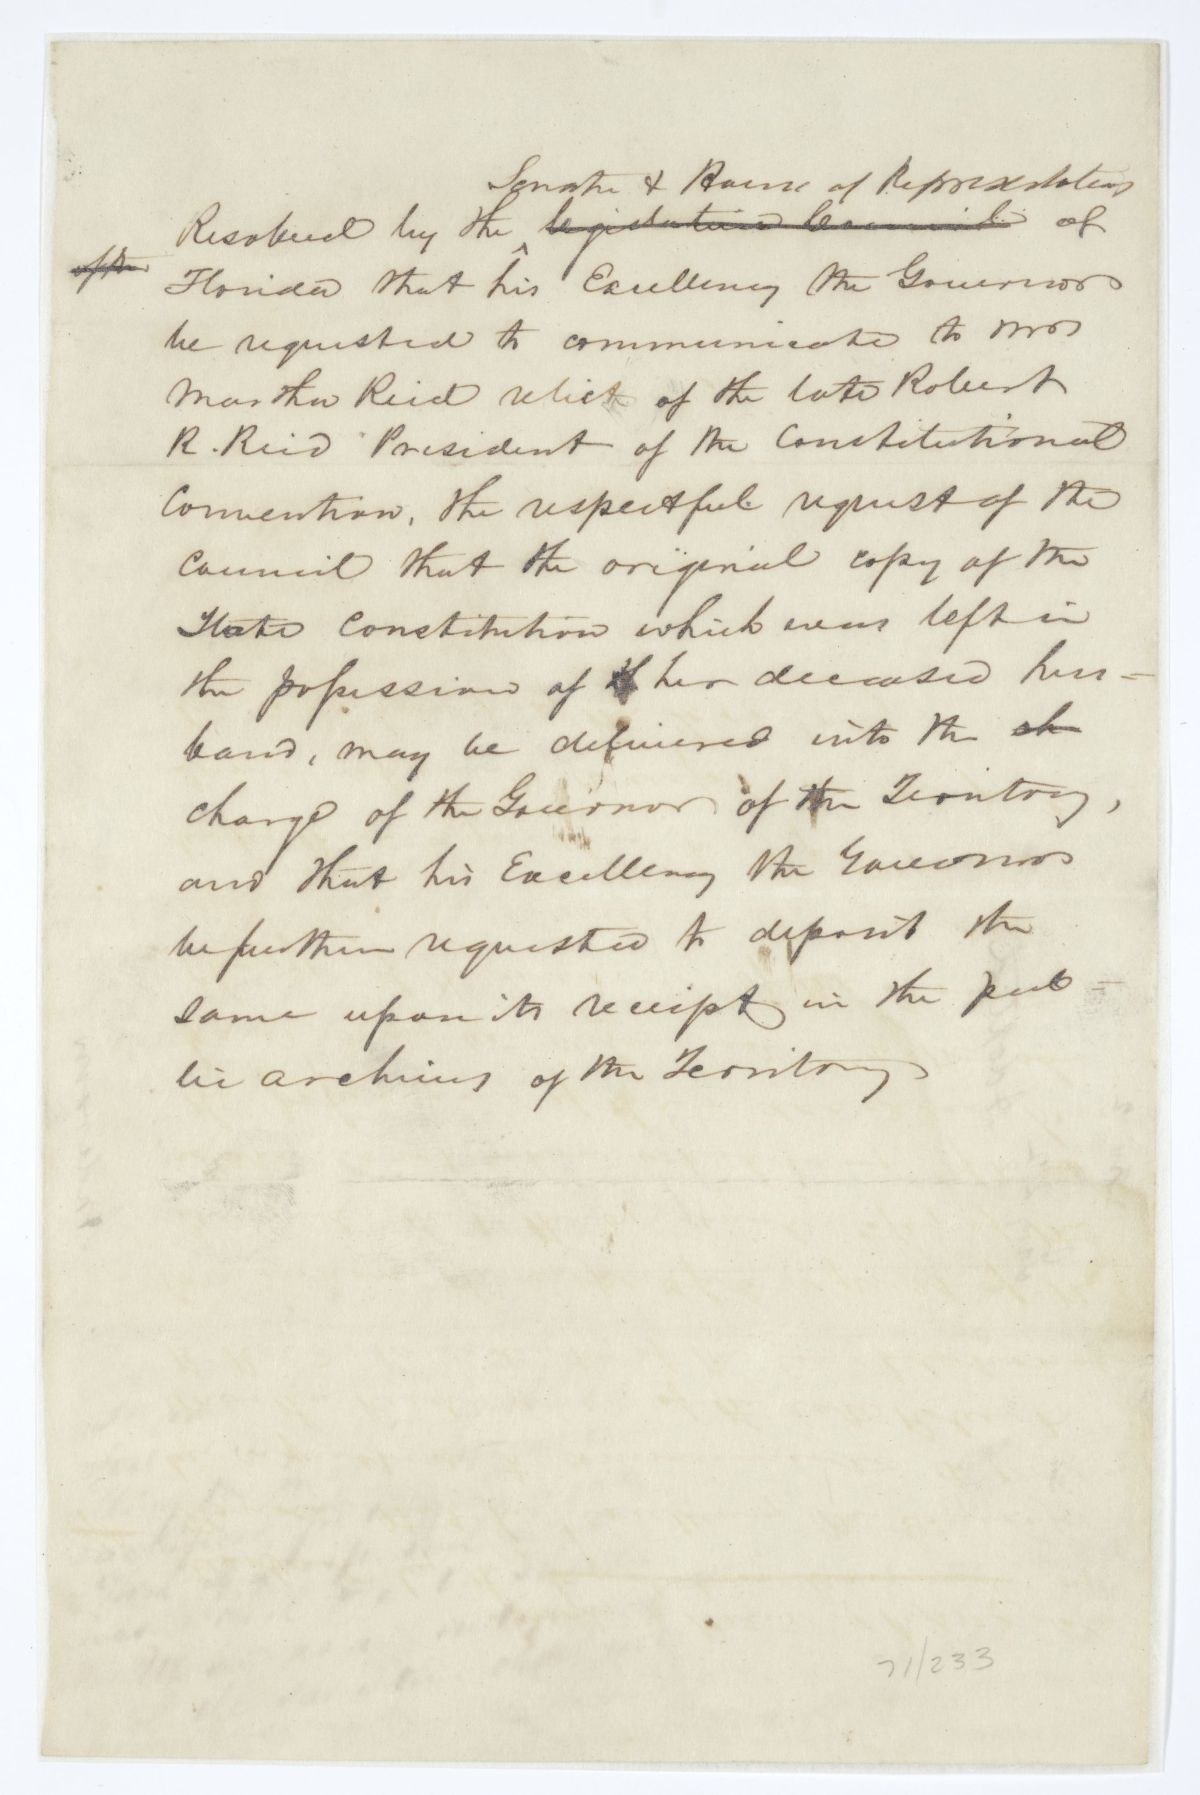 Senate & House of Representatives
Resolved by the ^ legislative Council of
of the
Florida that his Excellency the Governor
be requested to communicate to Mrs
Martha Reid relict of the late Robert
R. Reid President of the Constitutional
Convention, the respectful request of the
Council that the original copy of the
State Constitution which was left in
the possession of her deceased hus-
band, may be delivered into the ch
charge of the Governor of the Territory,
and that his Excellency the Governor
be further requested to deposit the
same upon its receipt in the pub-
lic archives of the Territory
71/233